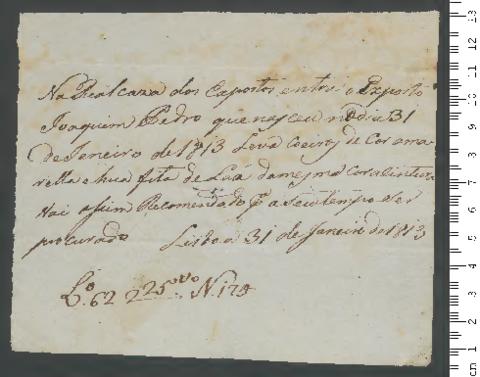 Na Real caza dos Expostos entrou o Exposto
Joaquim Pedro que nasceu no dia 31
de Janeiro de 1813 Leva coeiros de Cor ama
rella e hua fita de Laã da mesma Cor a sintura
Vai asim Recomendado pª a seu tempo ser
procurado Lisboa 31 de Janeiro de 1813
Lº 62 225 vº N. 174
cm 1 2 3 4 5 6 7 8 9 10 11 12 13